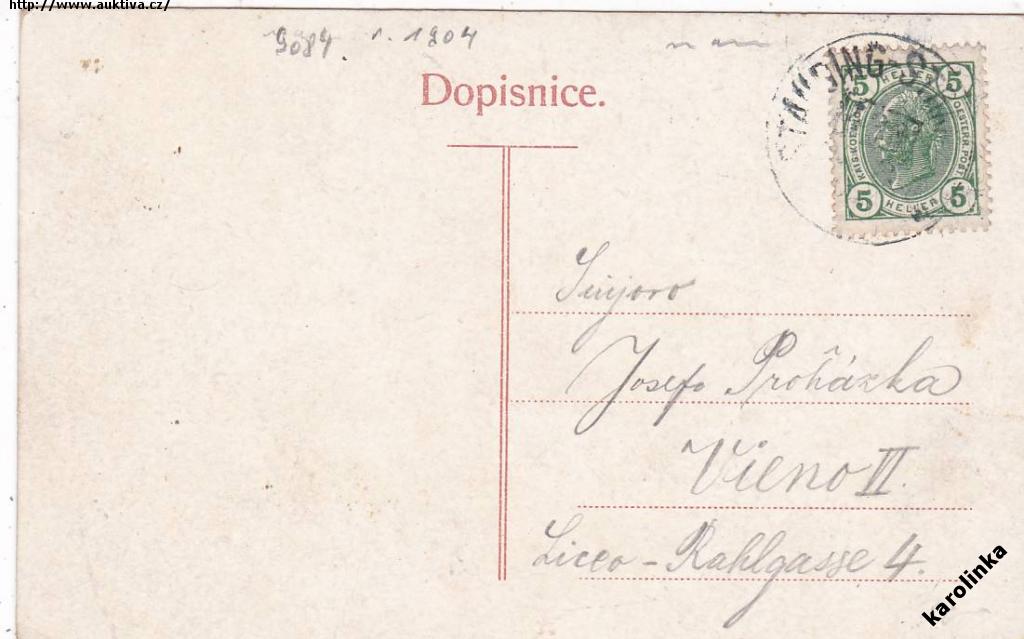 http://www.auktiva.cz/
9084. r. 1904
Dopisnice.
STAUDING
5 HELLER 5
KAIS.KOENIGL. OESTERR.POST
5 HELLER 5
Sinjoro
Josefo Proházka
Vieno II.
Liceo - Rahlgasse 4.
karolinka